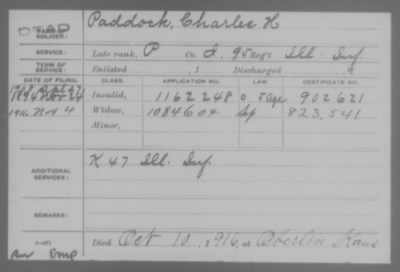 NAME OF SOLDIER: Paddock, Charles H
SERVICE: Late rank, P Co. I, 95 Reg't Ill. Inf.
TERM OF SERVICE: Enlisted , 1 Discharged
DATE OF FILING. CLASS. APPLICATION NO. LAW. CERTIFICATE NO.
1894 Nov 24 Invalid, 1162248 902621
1916 Nov 4 Widow, 1084604 823,541
Minor,
ADDITIONAL SERVICES: K 47 Ill. Inf.
REMARKS:
Died Oct 10, 1916, at Oberlin Kans